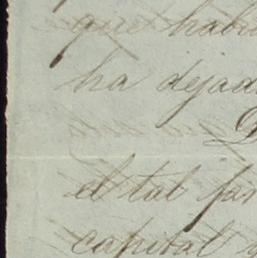 que habi
ha dejad
el tal par
capital y